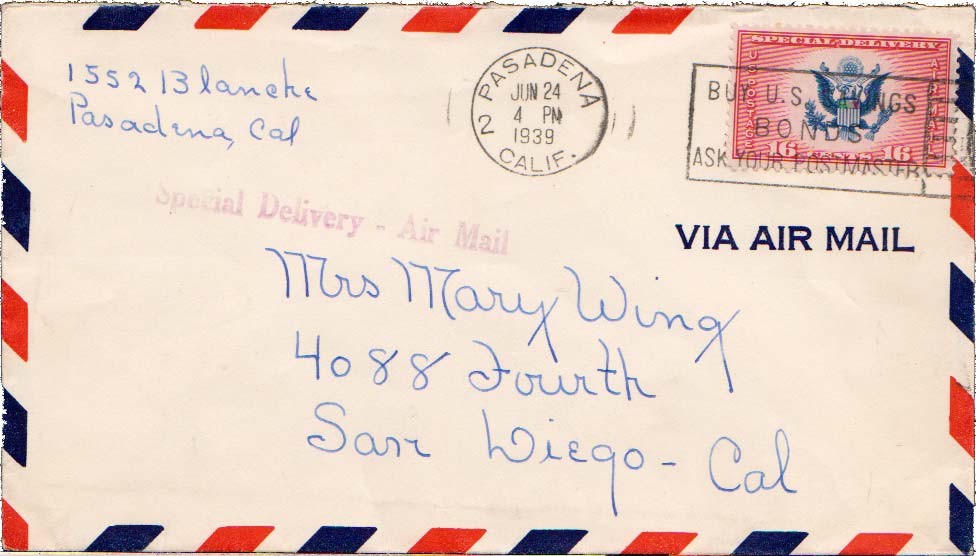 1552 Blanche
Pasadena, Cal
PASADENA
2
JUN 24
4 PM
1939
CALIF.
SPECIAL DELIVERY
U.S. POSTAGE
AIR MAIL
16 CENTS 16
BUY U.S. SAVINGS
BONDS
ASK YOUR POSTMASTER
Special Delivery - Air Mail
VIA AIR MAIL
Mrs Mary Wing
4088 Fourth
San Diego - Cal